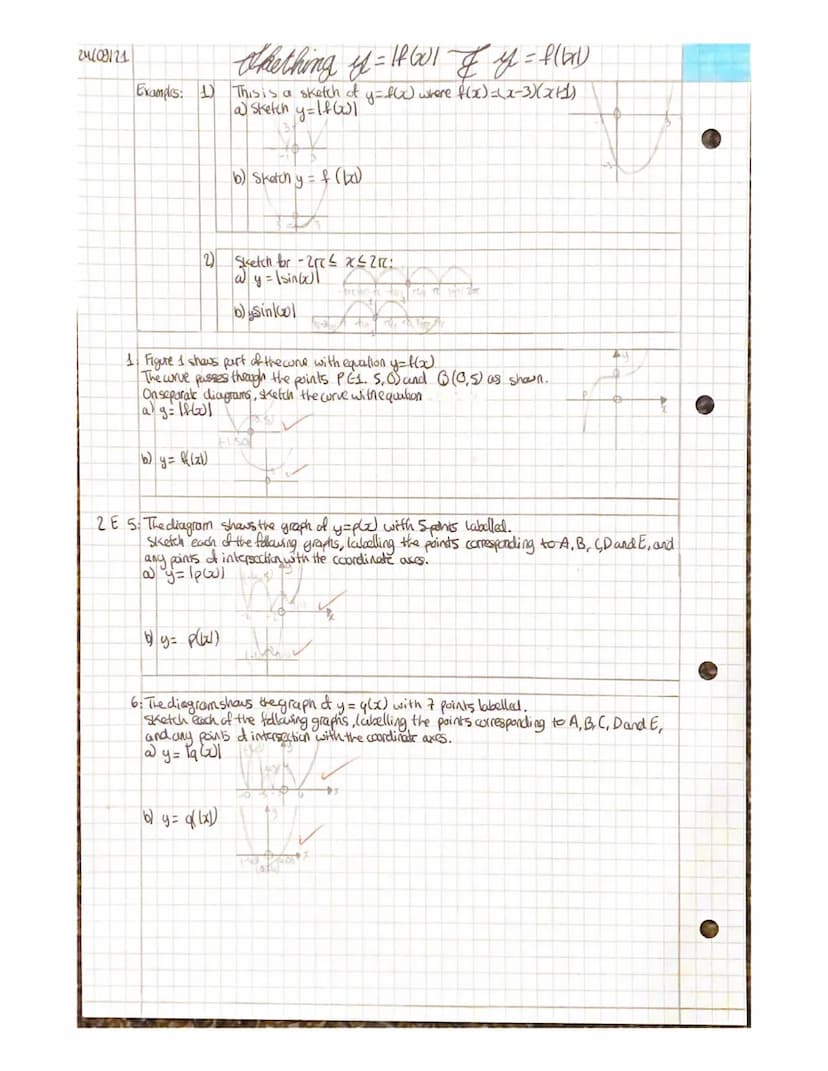 24/09/21
Skething y = |f(x)| & y = f(|x|)
Examples: 1) This is a sketch of y=f(x) where f(x)=(x-3)(x+1)
a) Sketch y=|f(x)|
b) Sketch y = f(|x|)
2) Sketch for -2π ≤ x ≤ 2π:
a) y = |sin(x)|
b) y sin|(x)|
1. Figure 1 shows part of the curve with equation y=f(x)
The curve passes through the points P(-1.5, 0) and Q(0,5) as shown.
On separate diagrams, sketch the curve with equation
a) y=|f(x)|
b) y= f(|x|)
2 E 5: The diagram shows the graph of y=p(x) with 5 points labelled.
Sketch each of the following graphs, labelling the points corresponding to A, B, C, D and E, and
any points of intersection with the coordinate axes.
a) y=|p(x)|
b) y= p(|x|)
6: The diagram shows the graph of y = q(x) with 7 points labelled.
Sketch each of the following graphs, labelling the points corresponding to A, B, C, D and E,
and any points of intersection with the coordinate axes.
a) y= |q(x)|
b) y= q(|x|)